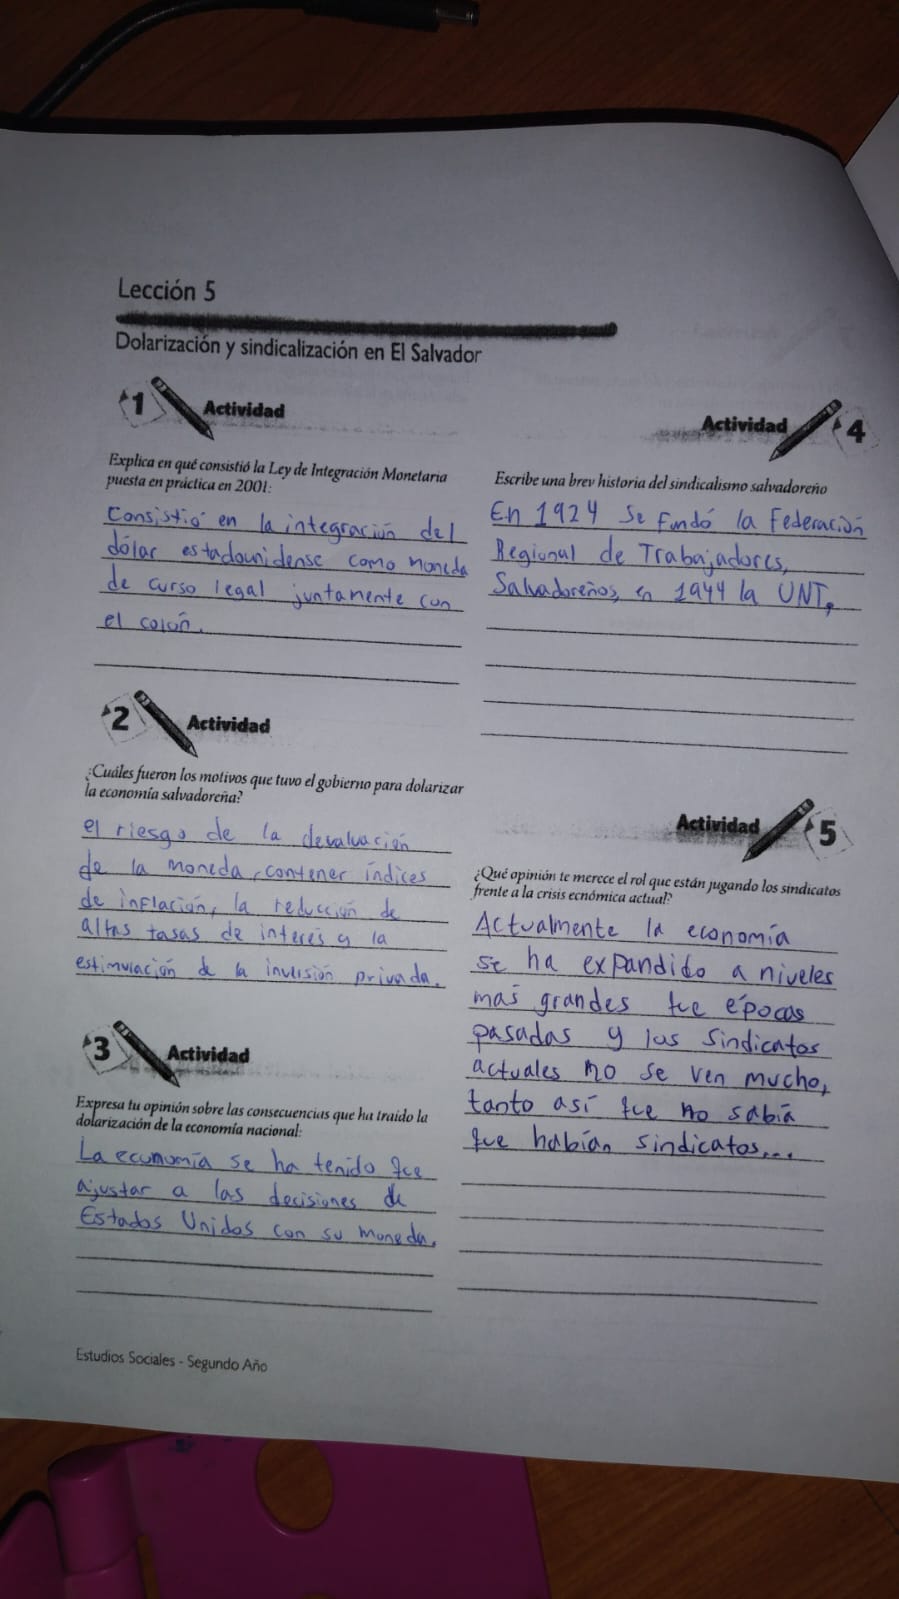 Lección 5
Dolarización y sindicalización en El Salvador
1 Actividad
Explica en qué consistió la Ley de Integración Monetaria
puesta en práctica en 2001:
Consistió en la integración del
dólar estadounidense como moneda
de curso legal juntamente con
el colón.
2 Actividad
¿Cuáles fueron los motivos que tuvo el gobierno para dolarizar
la economía salvadoreña?
el riesgo de la devaluación
de la moneda, contener índices
de inflación, la reducción de
altas tasas de interés y la
estimulación de la inversión privada.
3 Actividad
Expresa tu opinión sobre las consecuencias que ha traído la
dolarización de la economía nacional:
La economía se ha tenido que
ajustar a las decisiones de
Estados Unidos con su moneda.
Actividad 4
Escribe una brev historia del sindicalismo salvadoreño
En 1924 se fundó la Federación
Regional de Trabajadores,
Salvadoreños, en 1944 la UNT,
Actividad 5
¿Qué opinión te merece el rol que están jugando los sindicatos
frente a la crisis ecnómica actual?
Actualmente la economía
se ha expandido a niveles
mas grandes que épocas
pasadas y los sindicatos
actuales no se ven mucho,
tanto así que no sabía
que habían sindicatos...
Estudios Sociales - Segundo Año